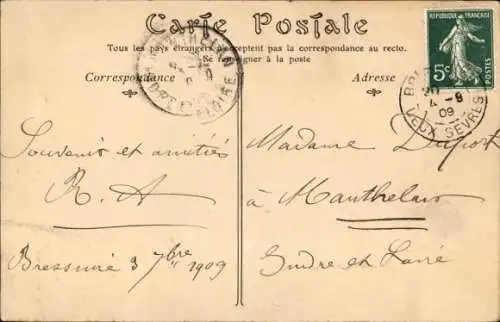 Carte Postale
Tous les pays étrangers n'acceptent pas la correspondance au recto.
Se renseigner à la poste
Correspondance
Adresse
REPUBLIQUE FRANÇAISE
5c
POSTES
4-9
09
DEUX SEVRES
Souvenirs et amitiés
R. A
Bressuire 3 7bre 1909
Madame Duport
à Manthelan
Indre et Loire